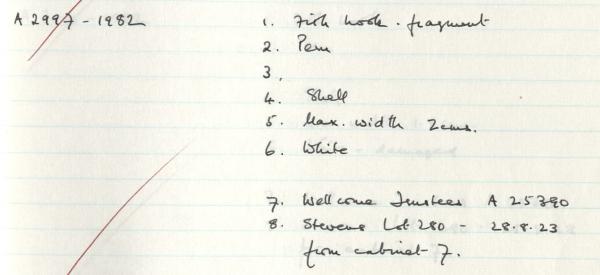 A 2997 - 1982
1. Fish hook - fragment
2. Peru
3.
4. Shell
5. Max. width 2cms.
6. White
7. Wellcome Trustees A 25390
8. Stevens Lot 280 - 28.8.23
from cabinet 7.